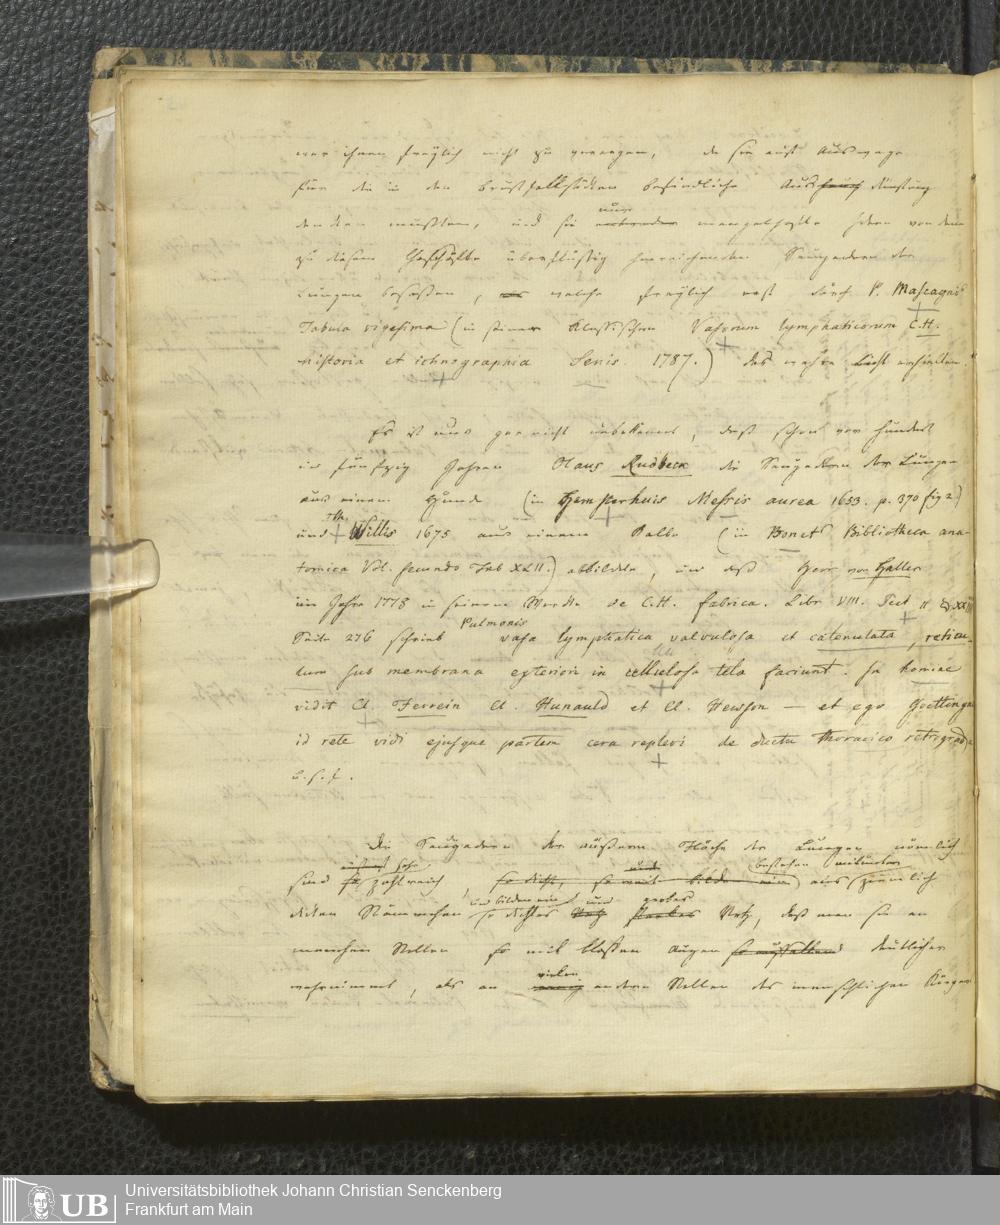 war ihnen freylich nicht zu verargen, da sie auf Auswege
für die in den Brustfellsäcken befindliche Ausdünstung
denken mußten, und sie nur mangelhafte Ideen von dem
zu diesem Geschäfte überflüssig hinreichenden Saugadern der
Lungen besaßen, welche freylich erst durch P. Mascagnis
Tabula vigesima (in seiner Klassischen Vasorum lymphaticorum C.H.
historia et ichnographia Senis 1787.) das wahre Licht erhielten.
Es ist uns gar nicht unbekannt, daß schon vor hundert
und fünfzig Jahren Olaus Rudbeck die Saugadern der Lungen
aus einem Hunde (in Hemsterhuis Messis aurea 1653. p. 370 fig 2)
und Th. Willis 1675 aus einem Kalbe (in Bonets Bibliotheca ana-
tomica Vol. secundo Tab XXII.) abbildete, und daß Herr von Haller
im Jahre 1778 in seinem Werke de C.H. fabrica. Libr VIII. Sect II
Seite 276 schrieb Pulmonis vasa lymphatica valvulosa et catenulata, reticu-
lum sub membrana exteriori in cellulosa tela faciunt. In homine
vidit Cl. Ferrein Cl. Hunauld et Cl. Hewson — et ego Goettingae
id rete vidi ejusque partem cera replevi de ductu thoracico retrograda
u.s.f.
Die Saugadern der äußern Fläche der Lungen nämlich
sind so zahlreich, so dicht, bestehen mitunter aus ziemlich
dicken Stämmchen und bilden ein so dichtes und großes Netz, daß man sie an
manchen Stellen so mit bloßen Augen deutlicher
wahrnimmt, als an vielen andern Stellen des menschlichen Körpers
Universitätsbibliothek Johann Christian Senckenberg
Frankfurt am Main
UB